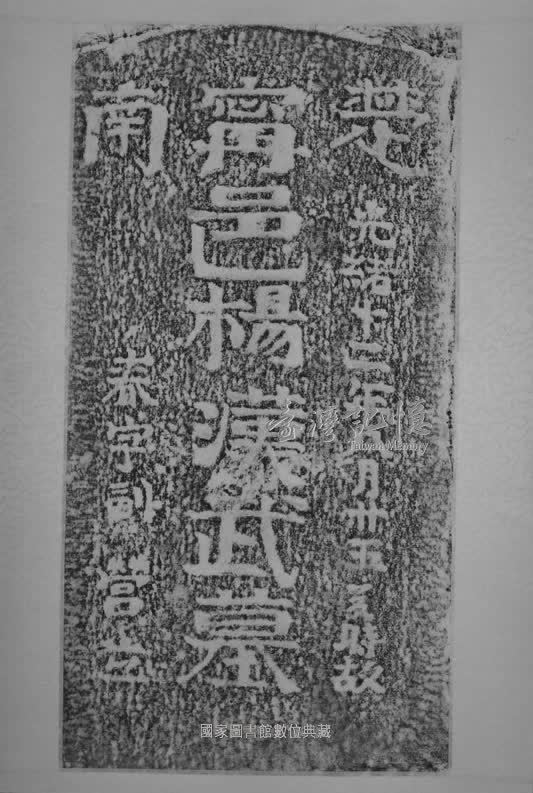 楚
南
光緒十二年 月卅五 時故
甯邑楊漢武墓
春字副營立
臺灣記憶
Taiwan Memory
國家圖書館數位典藏